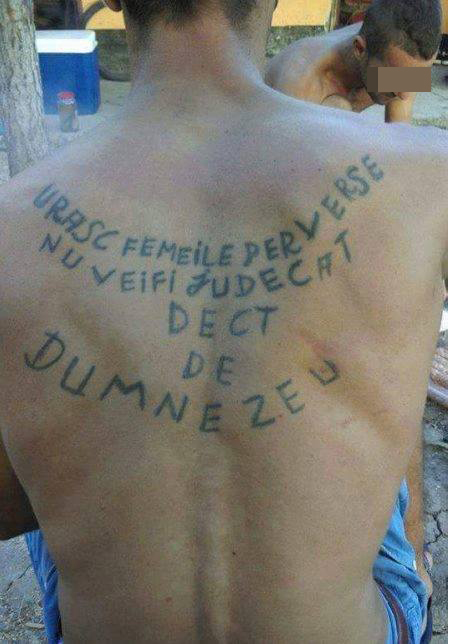 URASC FEMEILE PERVERSE
NU VEIFI JUDECAT
DECT
DE
DUMNEZEU